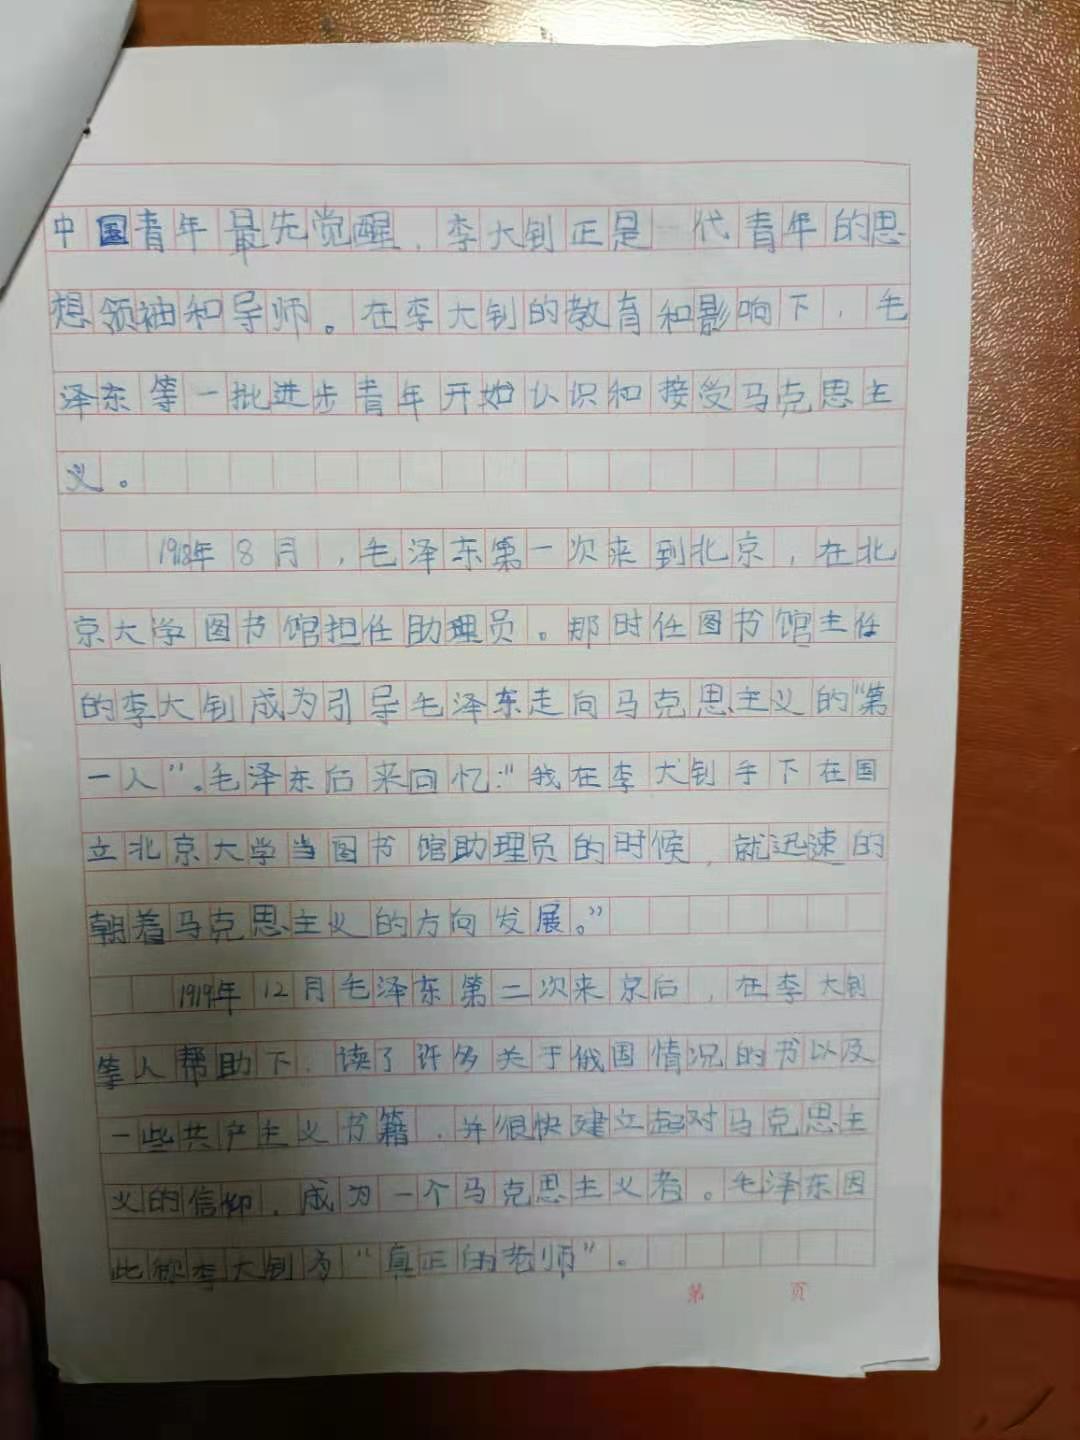 中国青年最先觉醒，李大钊正是一代青年的思
想领袖和导师。在李大钊的教育和影响下，毛
泽东等一批进步青年开始认识和接受马克思主
义。
1918年8月，毛泽东第一次来到北京，在北
京大学图书馆担任助理员。那时任图书馆主任
的李大钊成为引导毛泽东走向马克思主义的“第
一人”。毛泽东后来回忆：“我在李大钊手下在国
立北京大学当图书馆助理员的时候，就迅速的
朝着马克思主义的方向发展。”
1919年12月毛泽东第二次来京后，在李大钊
等人帮助下，读了许多关于俄国情况的书以及
一些共产主义书籍，并很快建立起对马克思主
义的信仰，成为一个马克思主义者。毛泽东因
此称李大钊为“真正的老师”。
第 页